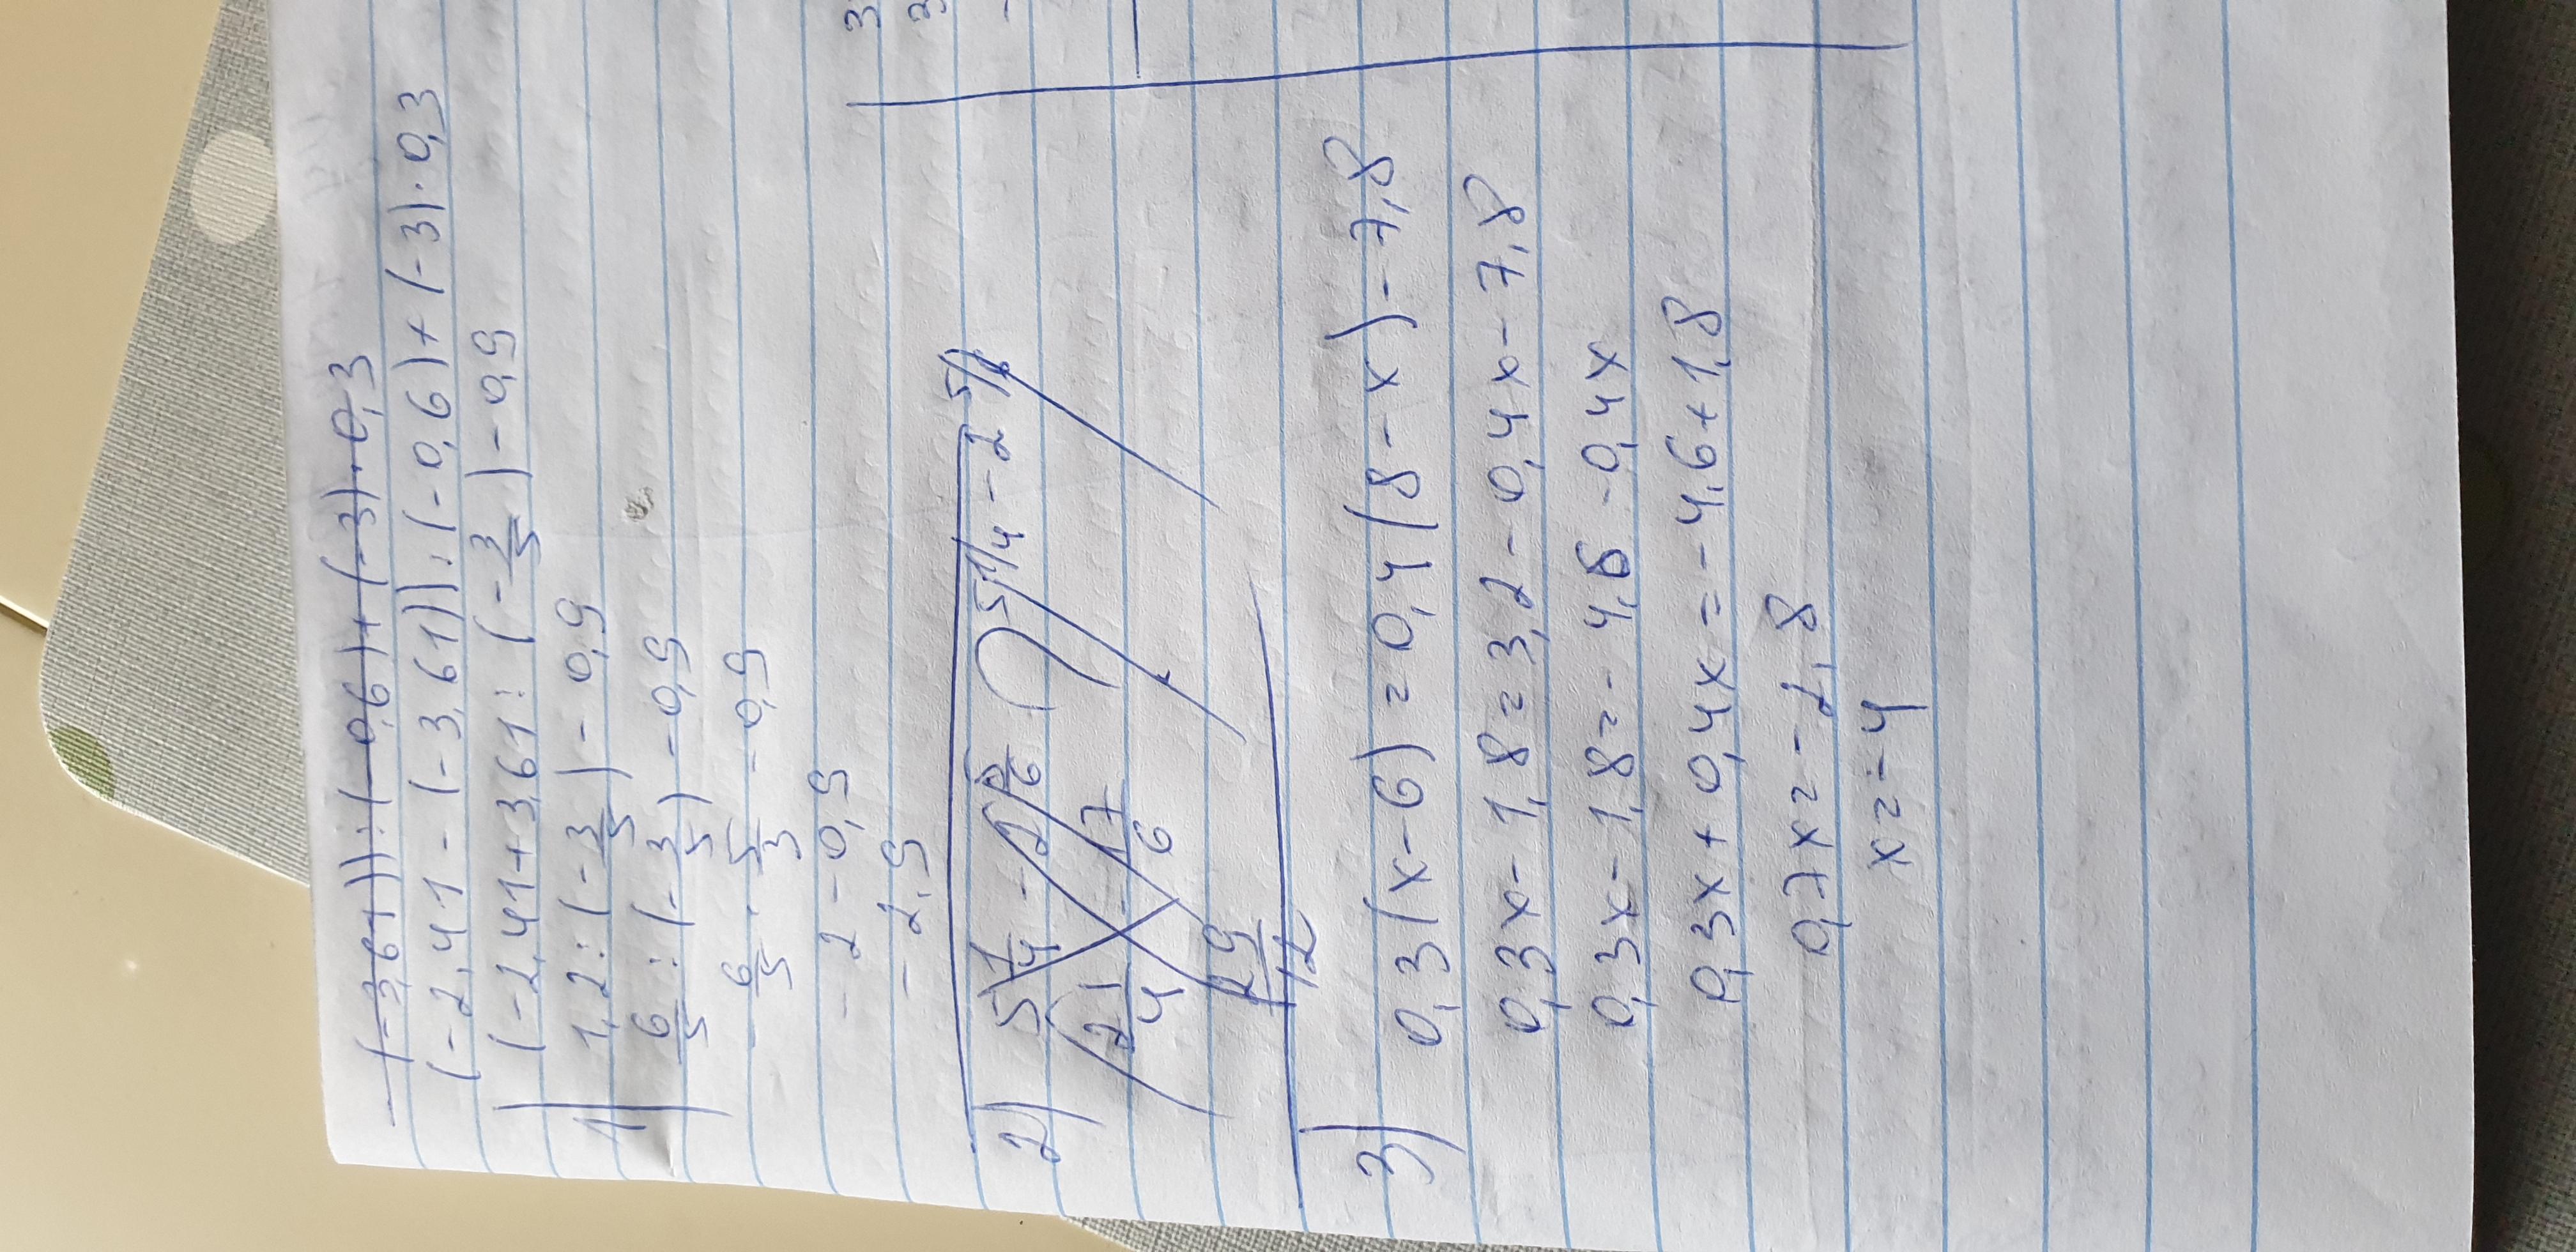 (-3,61)):(-0,6)+(-3)·0,3
(-2,41-(-3,61)):(-0,6)+(-3)·0,3
1) (-2,41+3,61:(-3/5)-0,9
1,2:(-3/5)-0,9
6/5:(-3/5)-0,9
-6/5·5/3-0,9
-2-0,9
-2,9
2) 5 1/4 - 2 5/6
5 1/4 - 2 5/6
2 1/4 - 17/6
29/12
3) 0,3(x-6)=0,4(8-x)-7,8
0,3x-1,8=3,2-0,4x-7,8
0,3x-1,8=-4,6-0,4x
0,3x+0,4x=-4,6+1,8
0,7x=-2,8
x=-4